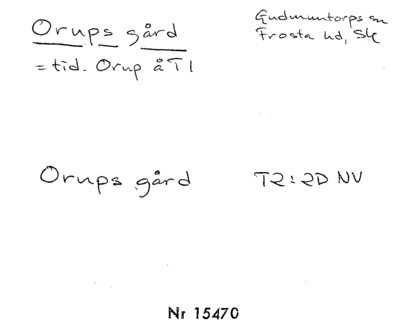 Orups gård
Gudmuntorps sn
Frosta hd, Sk
= tid. Orup å T1
Orups gård
T2: 2D NV
Nr 15470